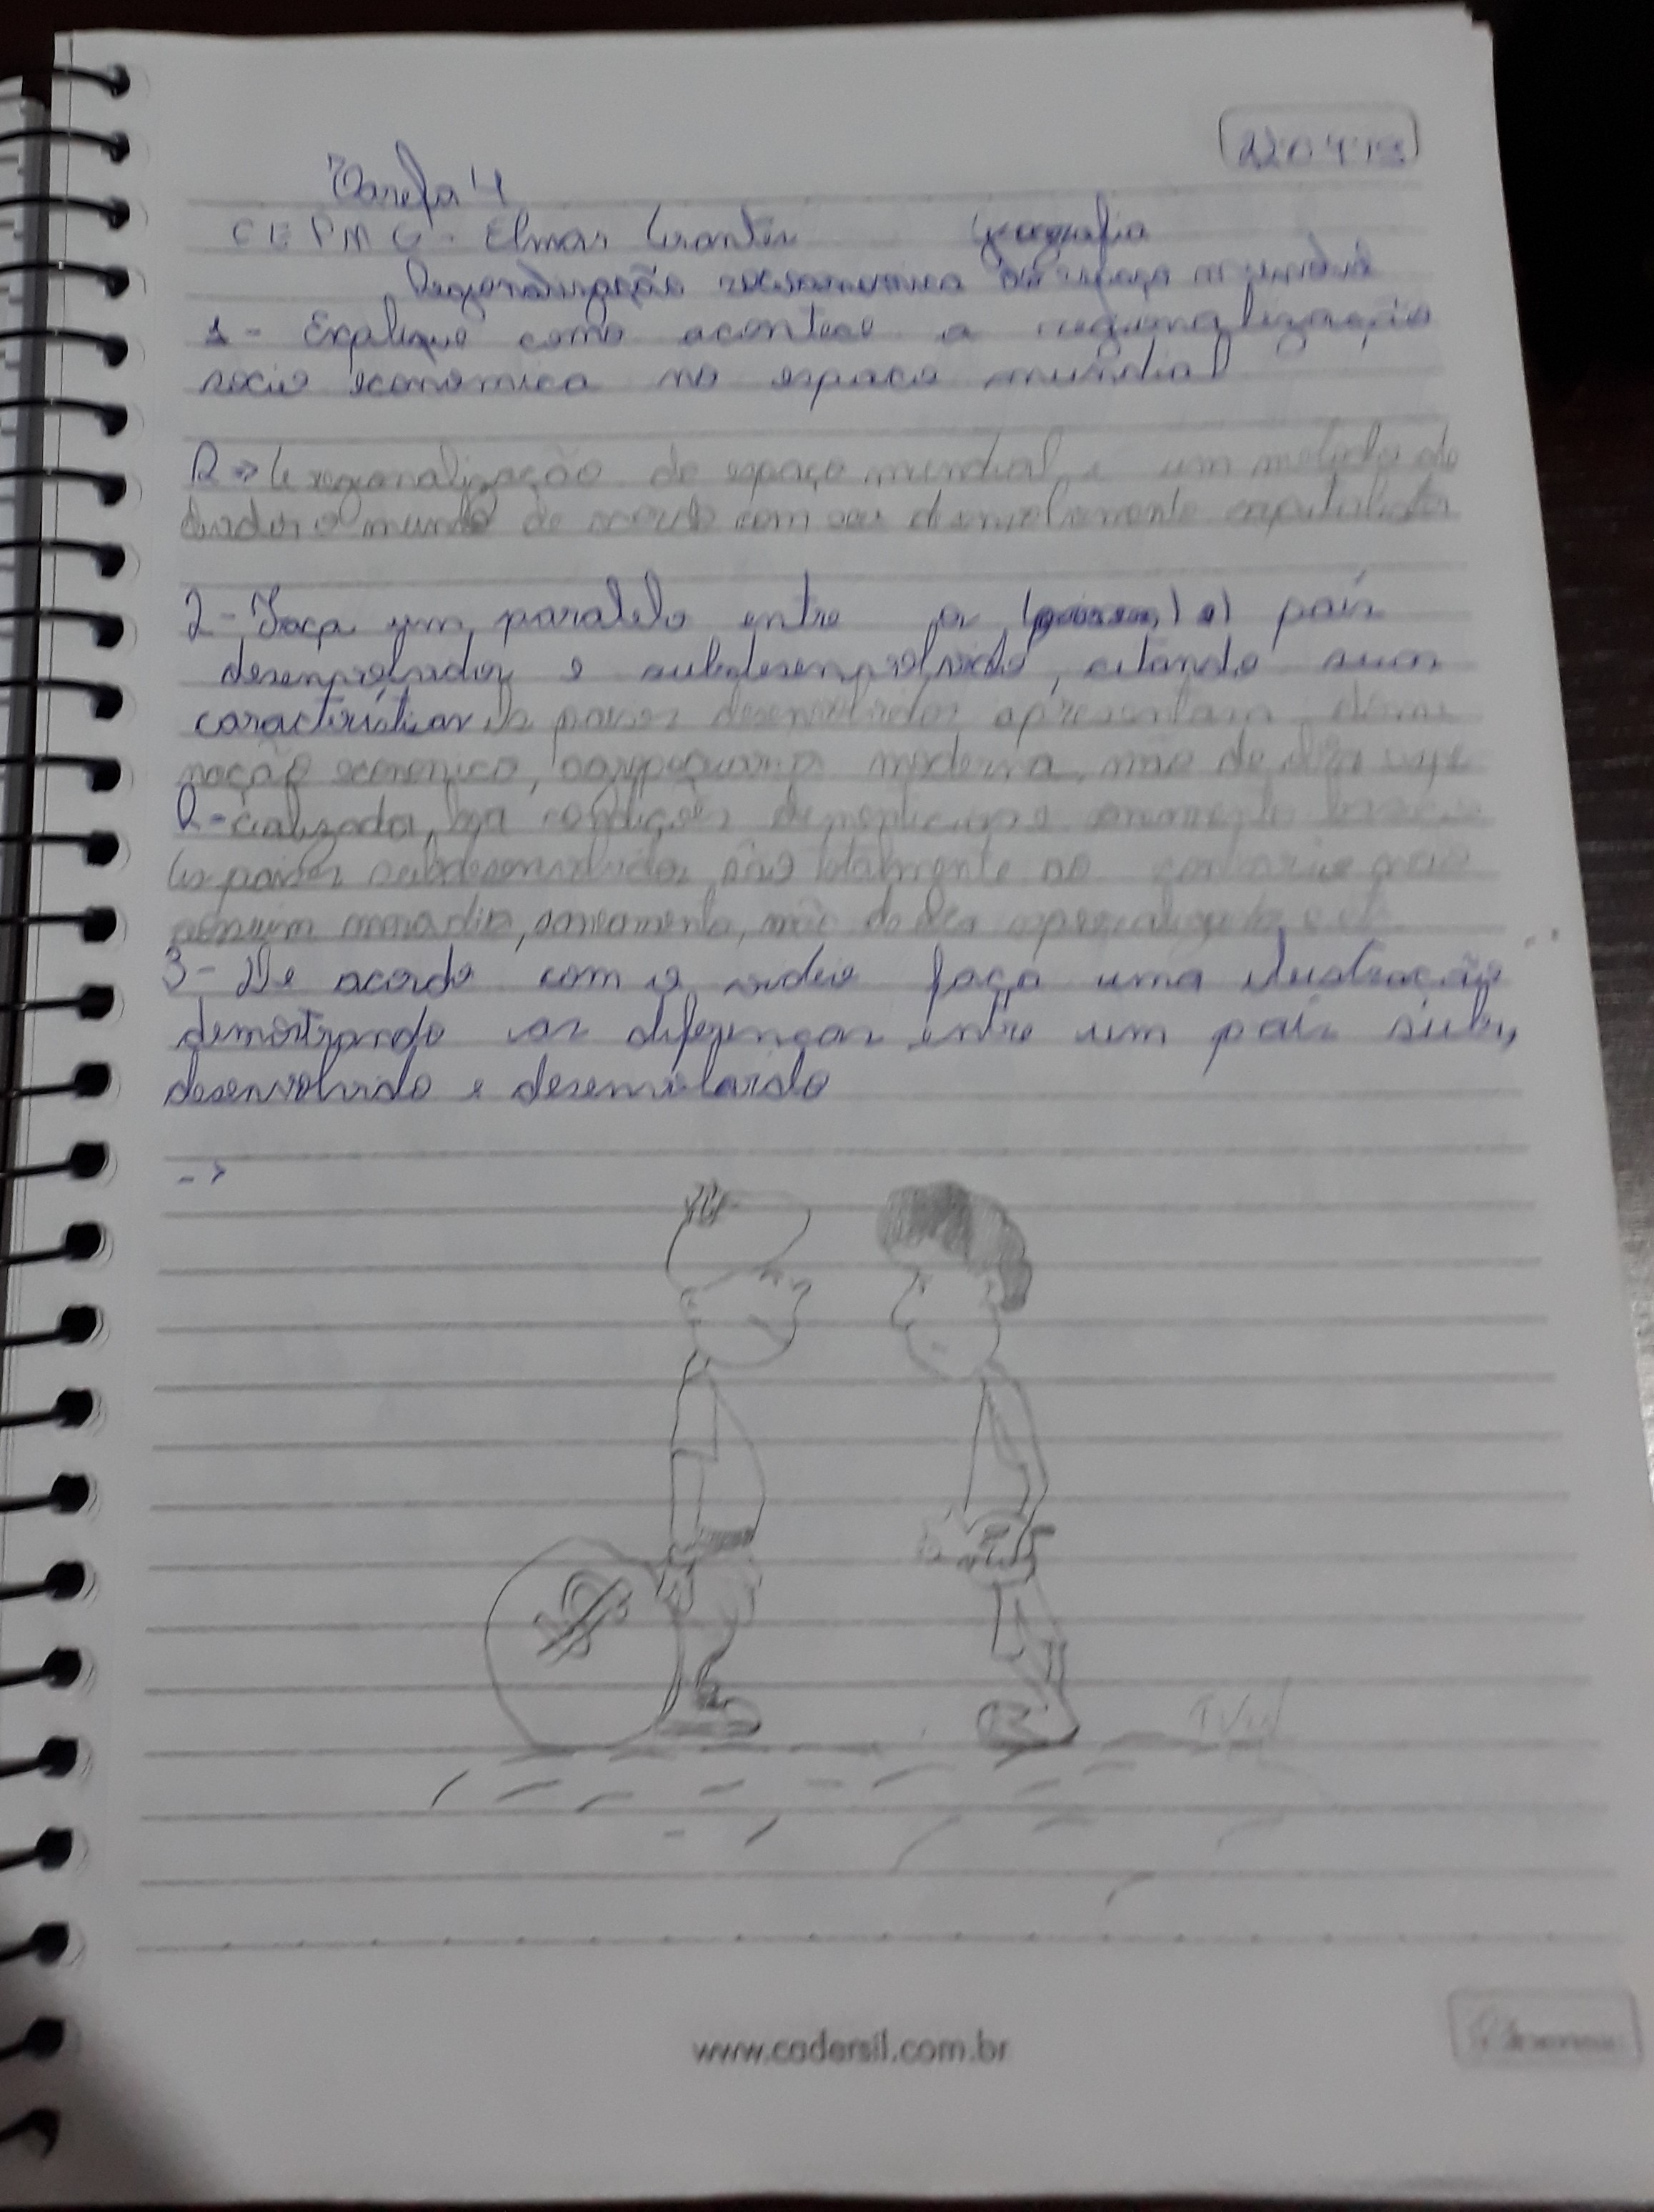 Tarefa 4
CEPMG - Elmar Arantes Geografia
Regionalização socioeconomica do espaço mundial
1 - Explique como acontece a regionalização
socio economica no espaco mundial
R => A regionalização do espaço mundial é um metodo de
dividir o mundo de acordo com seu desenvolvimento capitalista
2 - Faça um paralelo entre o país
desenvolvidos e subdesenvolvido, citando suas
característicasOs paises desenvolvidos apresentam domi
nação economica, agropecuaria moderna, mão de obra espe
R - cializada, boa condições de e saneamento
Os paises subdesenvolvidos são totalmente ao contrario não
possuem moradia, saneamento, mão de obra especializada e etc
3 - De acordo com o video faça uma ilustração
demostrando as diferenças entre um país sub,
desenvolvido e desenvolvido
->
www.cadersil.com.br